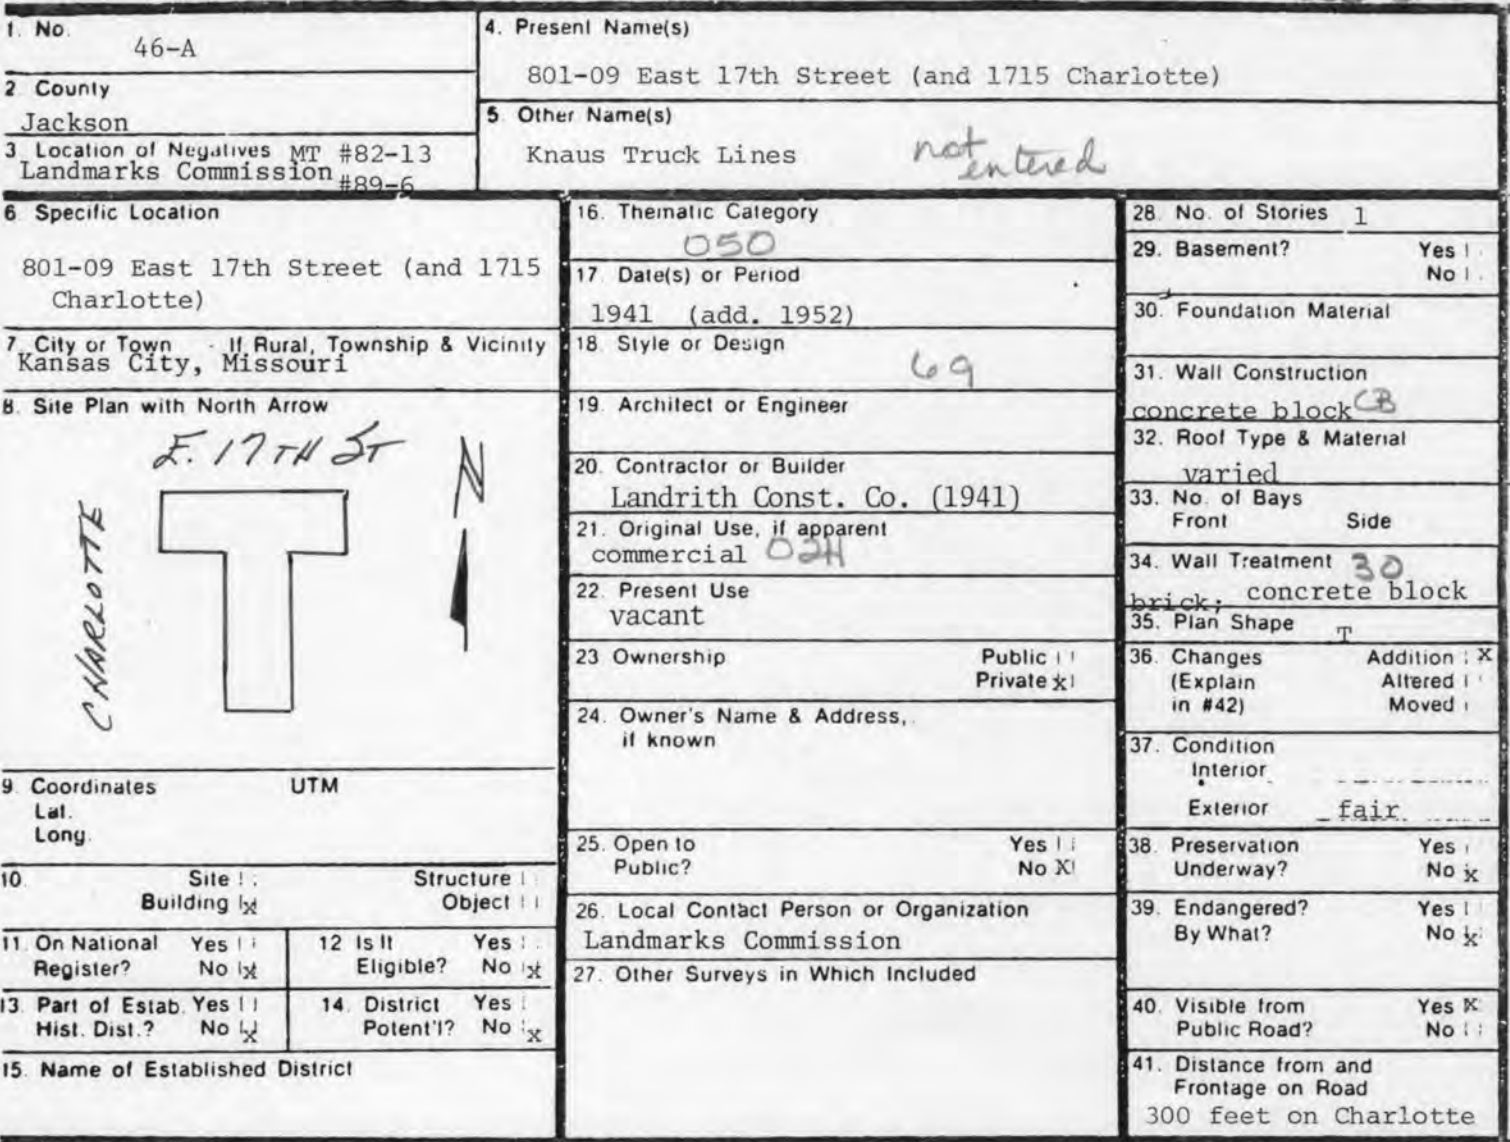 1. No.
46-A
2 County
Jackson
3 Location of Negatives MT #82-13
Landmarks Commission #89-6
4. Present Name(s)
801-09 East 17th Street (and 1715 Charlotte)
5 Other Name(s)
Knaus Truck Lines
not entered
6 Specific Location
801-09 East 17th Street (and 1715
Charlotte)
7. City or Town If Rural, Township & Vicinity
Kansas City, Missouri
8. Site Plan with North Arrow
E. 17TH ST
N
CHARLOTTE
9. Coordinates UTM
Lat.
Long.
10. Site Structure
Building x Object
11. On National Yes
Register? No x
12 Is It Yes
Eligible? No x
13. Part of Estab. Yes
Hist. Dist.? No x
14. District Yes
Potent'l? No x
15. Name of Established District
16. Thematic Category
050
17. Date(s) or Period
1941 (add. 1952)
18. Style or Design
69
19. Architect or Engineer
20. Contractor or Builder
Landrith Const. Co. (1941)
21. Original Use, if apparent
commercial 02H
22. Present Use
vacant
23 Ownership Public
Private x
24. Owner's Name & Address,
if known
25. Open to Yes
Public? No X
26. Local Contact Person or Organization
Landmarks Commission
27. Other Surveys in Which Included
28. No. of Stories 1
29. Basement? Yes
No
30. Foundation Material
31. Wall Construction
concrete block CB
32. Roof Type & Material
varied
33. No. of Bays
Front Side
34. Wall Treatment 30
brick; concrete block
35. Plan Shape T
36. Changes Addition X
(Explain Altered
in #42) Moved
37. Condition
Interior
Exterior fair
38. Preservation Yes
Underway? No x
39. Endangered? Yes
By What? No x
40. Visible from Yes X
Public Road? No
41. Distance from and
Frontage on Road
300 feet on Charlotte